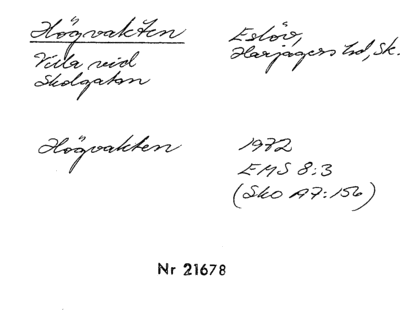 Högvakten
Villa vid
Skolgatan
Eslöv,
Harjagers hd, Sk.
Högvakten
1972
EMS 8:3
(Sko A7:156)
Nr 21678